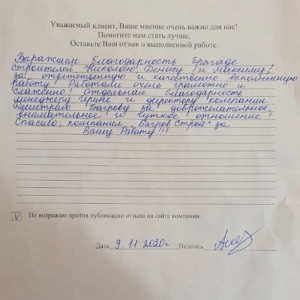 Уважаемый клиент, Ваше мнение очень важно для нас!
Помогите нам стать лучше,
Оставьте Ваш отзыв о выполненной работе.
Выражаем благодарность бригаде
строителей Николаю, Денису и Максиму!
за ответственную и качественно выполненную
работу! Работали очень грамотно и
слаженно! Отдельная благодарность
менеджеру Ирине и директору компании
Дмитрию Вагрову за доброжелательное,
внимательное и чуткое отношение!
Спасибо, компания " Строй" за
Вашу Работу!!!
V Не возражаю против публикации отзыва на сайте компании.
Дата 9 11 2020г. Подпись